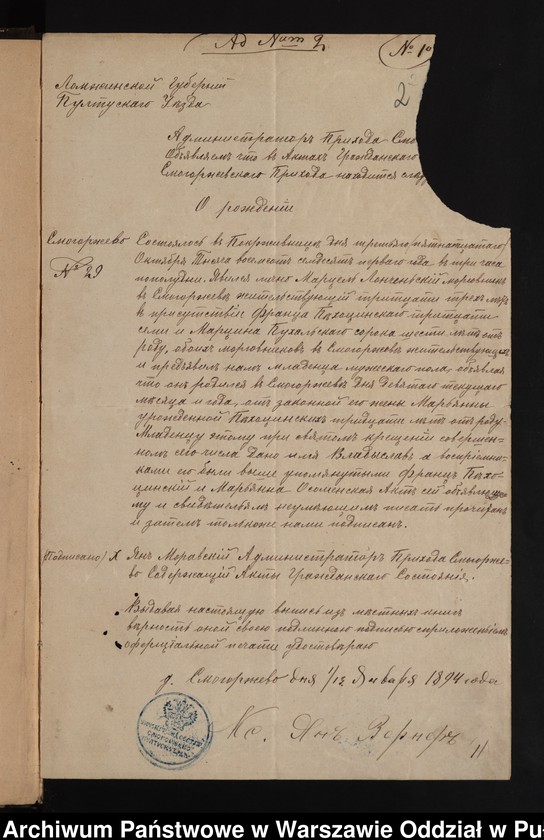 Ad Num 2
№ 1
2
Ломжинской Губерніи
Пултускаго Уѣзда
Администраторъ Прихода Смо
Объявляетъ что въ Актахъ Гражданскаго
Смогоржевскаго Прихода находится слѣд
О рожденіи
Смогоржево
№ 29
Состоялось въ дня третьяго/пятнатцатаго/
Октября Тысяча восемсотъ семдесятъ перваго года въ три часа
пополудни. Явился лично Марцелъ
въ Смогоржевѣ жительствующій тритцати трехъ лѣтъ
въ присутствіи Франца Пъхоцинскаго тритцати
семи и Марцина Пухальскаго сорока шести лѣтъ отъ
роду, обоихъ въ Смогоржевѣ жительствующихъ
и предъявилъ намъ младенца мужескаго пола, объявляя
что онъ родился въ Смогоржевѣ дня девятаго текущаго
мѣсяца и года, отъ законной его жены Марьянны
урожденной Пъхоцинскихъ тридцати лѣтъ отъ роду
Младенцу этому при святомъ крещеніи совершен-
номъ сего числа дано имя Владыславъ а воспріемни-
ками его были выше упомянутыми Францъ Пъхо-
цинскій и Марьянна Осоминская Актъ сей объявляюще-
му и свидѣтелямъ неумѣющимъ писать прочитанъ
и затѣмъ только нами подписанъ.
(Подписано) Х Янъ Моравскій Администраторъ Прихода Смогорже-
во Содержащій Акты Гражданскаго Состоянія.
Выдавая настоящую выпись изъ мѣстныхъ книгъ
вѣрность оной своею подлинною подписью съ приложеніемъ
оффиціальной печати удостовѣряю
д. Смогоржево дня 1/13 Января 1894 года
Кс. Янъ Вернеръ
11
Archiwum Państwowe w Warszawie Oddział w Pu